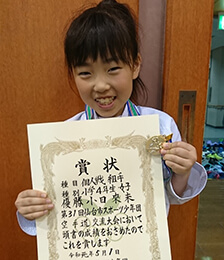 賞状
種目 個人戦 組手
種別 小学4年生女子
優勝 小日来未
第31回仙台市スポーツ少年団
空手道交流大会において
頭書の成績をおさめたので
これを賞します
令和元年5月1日